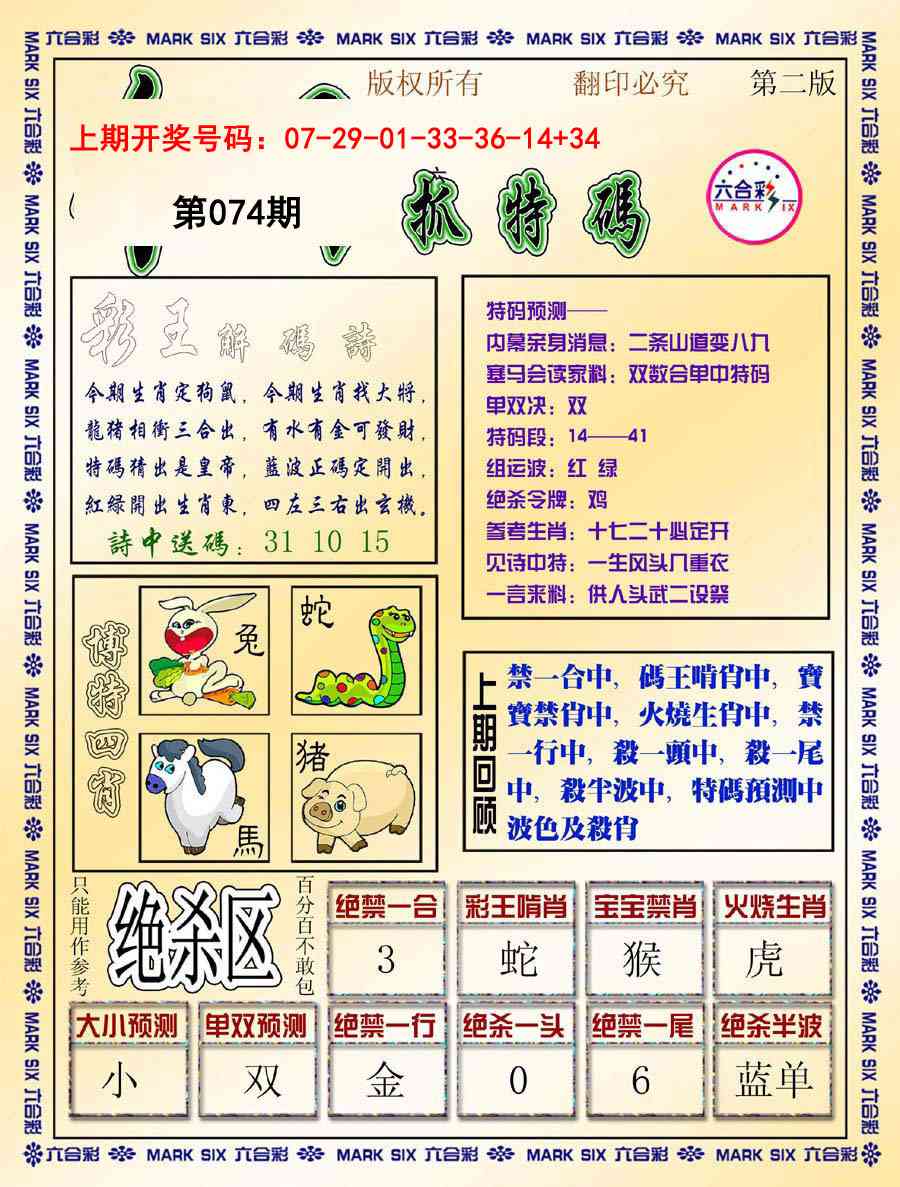 六合彩 MARK SIX 六合彩 MARK SIX 六合彩 MARK SIX 六合彩 MARK SIX 六合彩
版权所有 翻印必究 第二版
上期开奖号码：07-29-01-33-36-14+34
第074期
抓特碼
六合彩
MARK SIX
彩王解碼詩
今期生肖定狗鼠，今期生肖找大將，
龍猪相衝三合出，有水有金可發財，
特碼猜出是皇帝，藍波正碼定開出，
紅緑開出生肖東，四左三右出玄機。
詩中送碼：31 10 15
特码预测——
内幕亲身消息：二条山道变八九
塞马会读家料：双数合单中特码
单双决：双
特码段：14——41
组运波：红 绿
绝杀令牌：鸡
参考生肖：十七二十必定开
见诗中特：一生风头几重衣
一言来料：供人头武二设祭
博特四肖
兔
蛇
馬
猪
上期回顾
禁一合中，碼王啃肖中，寶
寶禁肖中，火燒生肖中，禁
一行中，殺一頭中，殺一尾
中，殺半波中，特碼預測中
波色及殺肖
只能用作参考
绝杀区
百分百不敢包
绝禁一合 彩王啃肖 宝宝禁肖 火烧生肖
3 蛇 猴 虎
大小预测 单双预测 绝禁一行 绝杀一头 绝禁一尾 绝杀半波
小 双 金 0 6 蓝单
六合彩 MARK SIX 六合彩 MARK SIX 六合彩 MARK SIX 六合彩 MARK SIX 六合彩